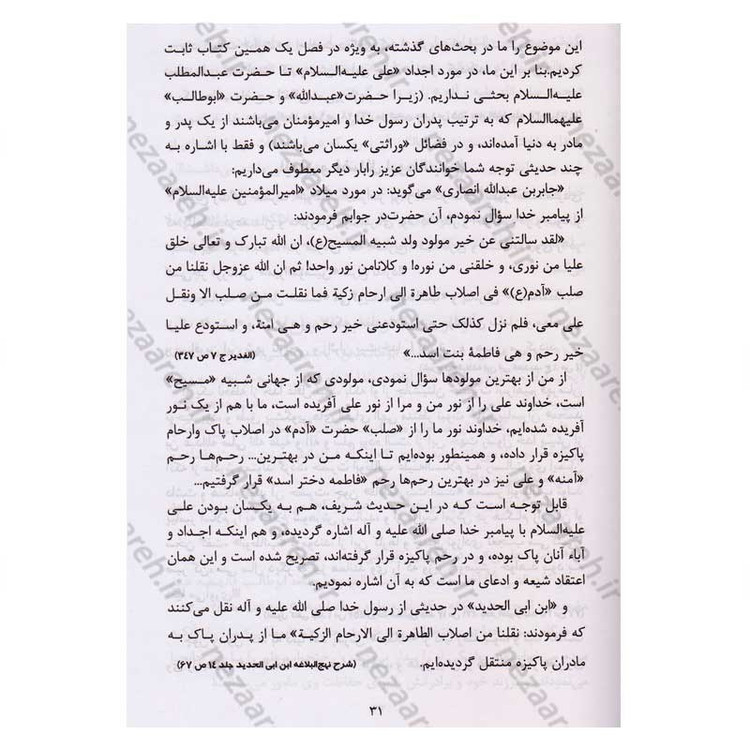 این موضوع را ما در بحث‌های گذشته، به ویژه در فصل یک همین کتاب ثابت
کردیم.بنا بر این ما، در مورد اجداد «علی علیه‌السلام» تا حضرت عبدالمطلب
علیه‌السلام بحثی نداریم. (زیرا حضرت«عبدالله» و حضرت «ابوطالب»
علیهماالسلام که به ترتیب پدران رسول خدا و امیرمؤمنان می‌باشند از یک پدر و
مادر به دنیا آمده‌اند، و در فضائل «وراثتی» یکسان می‌باشند) و فقط با اشاره به
چند حدیثی توجه شما خوانندگان عزیز رابار دیگر معطوف می‌داریم:
«جابربن عبدالله انصاری» می‌گوید: در مورد میلاد «امیرالمؤمنین علیه‌السلام»
از پیامبر خدا سؤال نمودم، آن حضرت‌در جوابم فرمودند:
«لقد سالتنی عن خیر مولود ولد شبیه المسیح(ع)، ان الله تبارک و تعالی خلق
علیا من نوری، و خلقنی من نوره! و کلانامن نور واحد! ثم ان الله عزوجل نقلنا من
صلب «آدم(ع)» فی اصلاب طاهرة الی ارحام زکیة فما نقلت من صلب الا ونقل
علی معی، فلم نزل کذلک حتی استودعنی خیر رحم و هی امنة، و استودع علیا
خیر رحم و هی فاطمة بنت اسد...» (الغدیر ج ۷ ص ۳۴۷)
از من از بهترین مولودها سؤال نمودی، مولودی که از جهانی شبیه «مسیح»
است، خداوند علی را از نور من و مرا از نور علی آفریده است، ما با هم از یک نور
آفریده شده‌ایم، خداوند نور ما را از «صلب» حضرت «آدم» در اصلاب پاک وارحام
پاکیزه قرار داده، و همینطور بوده‌ایم تا اینکه من در بهترین... رحم‌ها رحم
«آمنه» و علی نیز در بهترین رحم‌ها رحم «فاطمه دختر اسد» قرار گرفتیم...
قابل توجه است که در این حدیث شریف، هم به یکسان بودن علی
علیه‌السلام با پیامبر خدا صلی الله علیه و آله اشاره گردیده، و هم اینکه اجداد و
آباء آنان پاک بوده، و در رحم پاکیزه قرار گرفته‌اند، تصریح شده است و این همان
اعتقاد شیعه و ادعای ما است که به آن اشاره نمودیم.
و «ابن ابی الحدید» در حدیثی از رسول خدا صلی الله علیه و آله نقل می‌کنند
که فرمودند: نقلنا من اصلاب الطاهرة الی الارحام الزکیة» ما از پدران پاک به
مادران پاکیزه منتقل گردیده‌ایم. (شرح نهج‌البلاغه ابن ابی الحدید جلد ١٤ ص ۶۷)
۳۱
nezaareh.ir